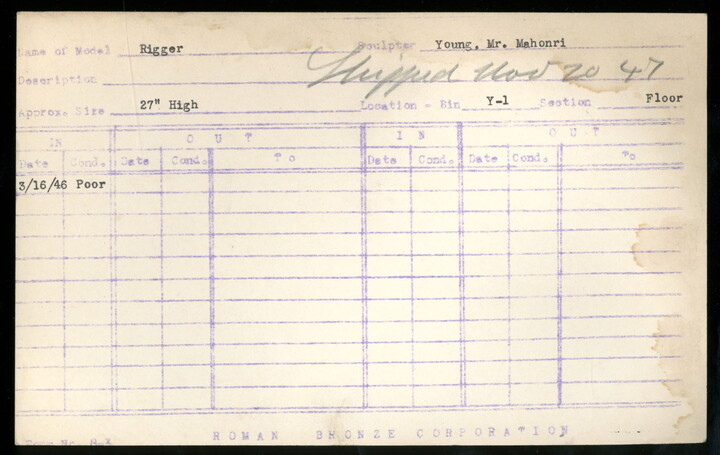 Name of Model Rigger Sculptor Young, Mr. Mahonri
Description Shipped Nov 20 47
Approx. Size 27" High Location - Bin Y-1 Section Floor
IN OUT IN OUT
Date Cond. Date Cond. To Date Cond. Date Cond. To
3/16/46 Poor
Form No. 8-X
ROMAN BRONZE CORPORATION